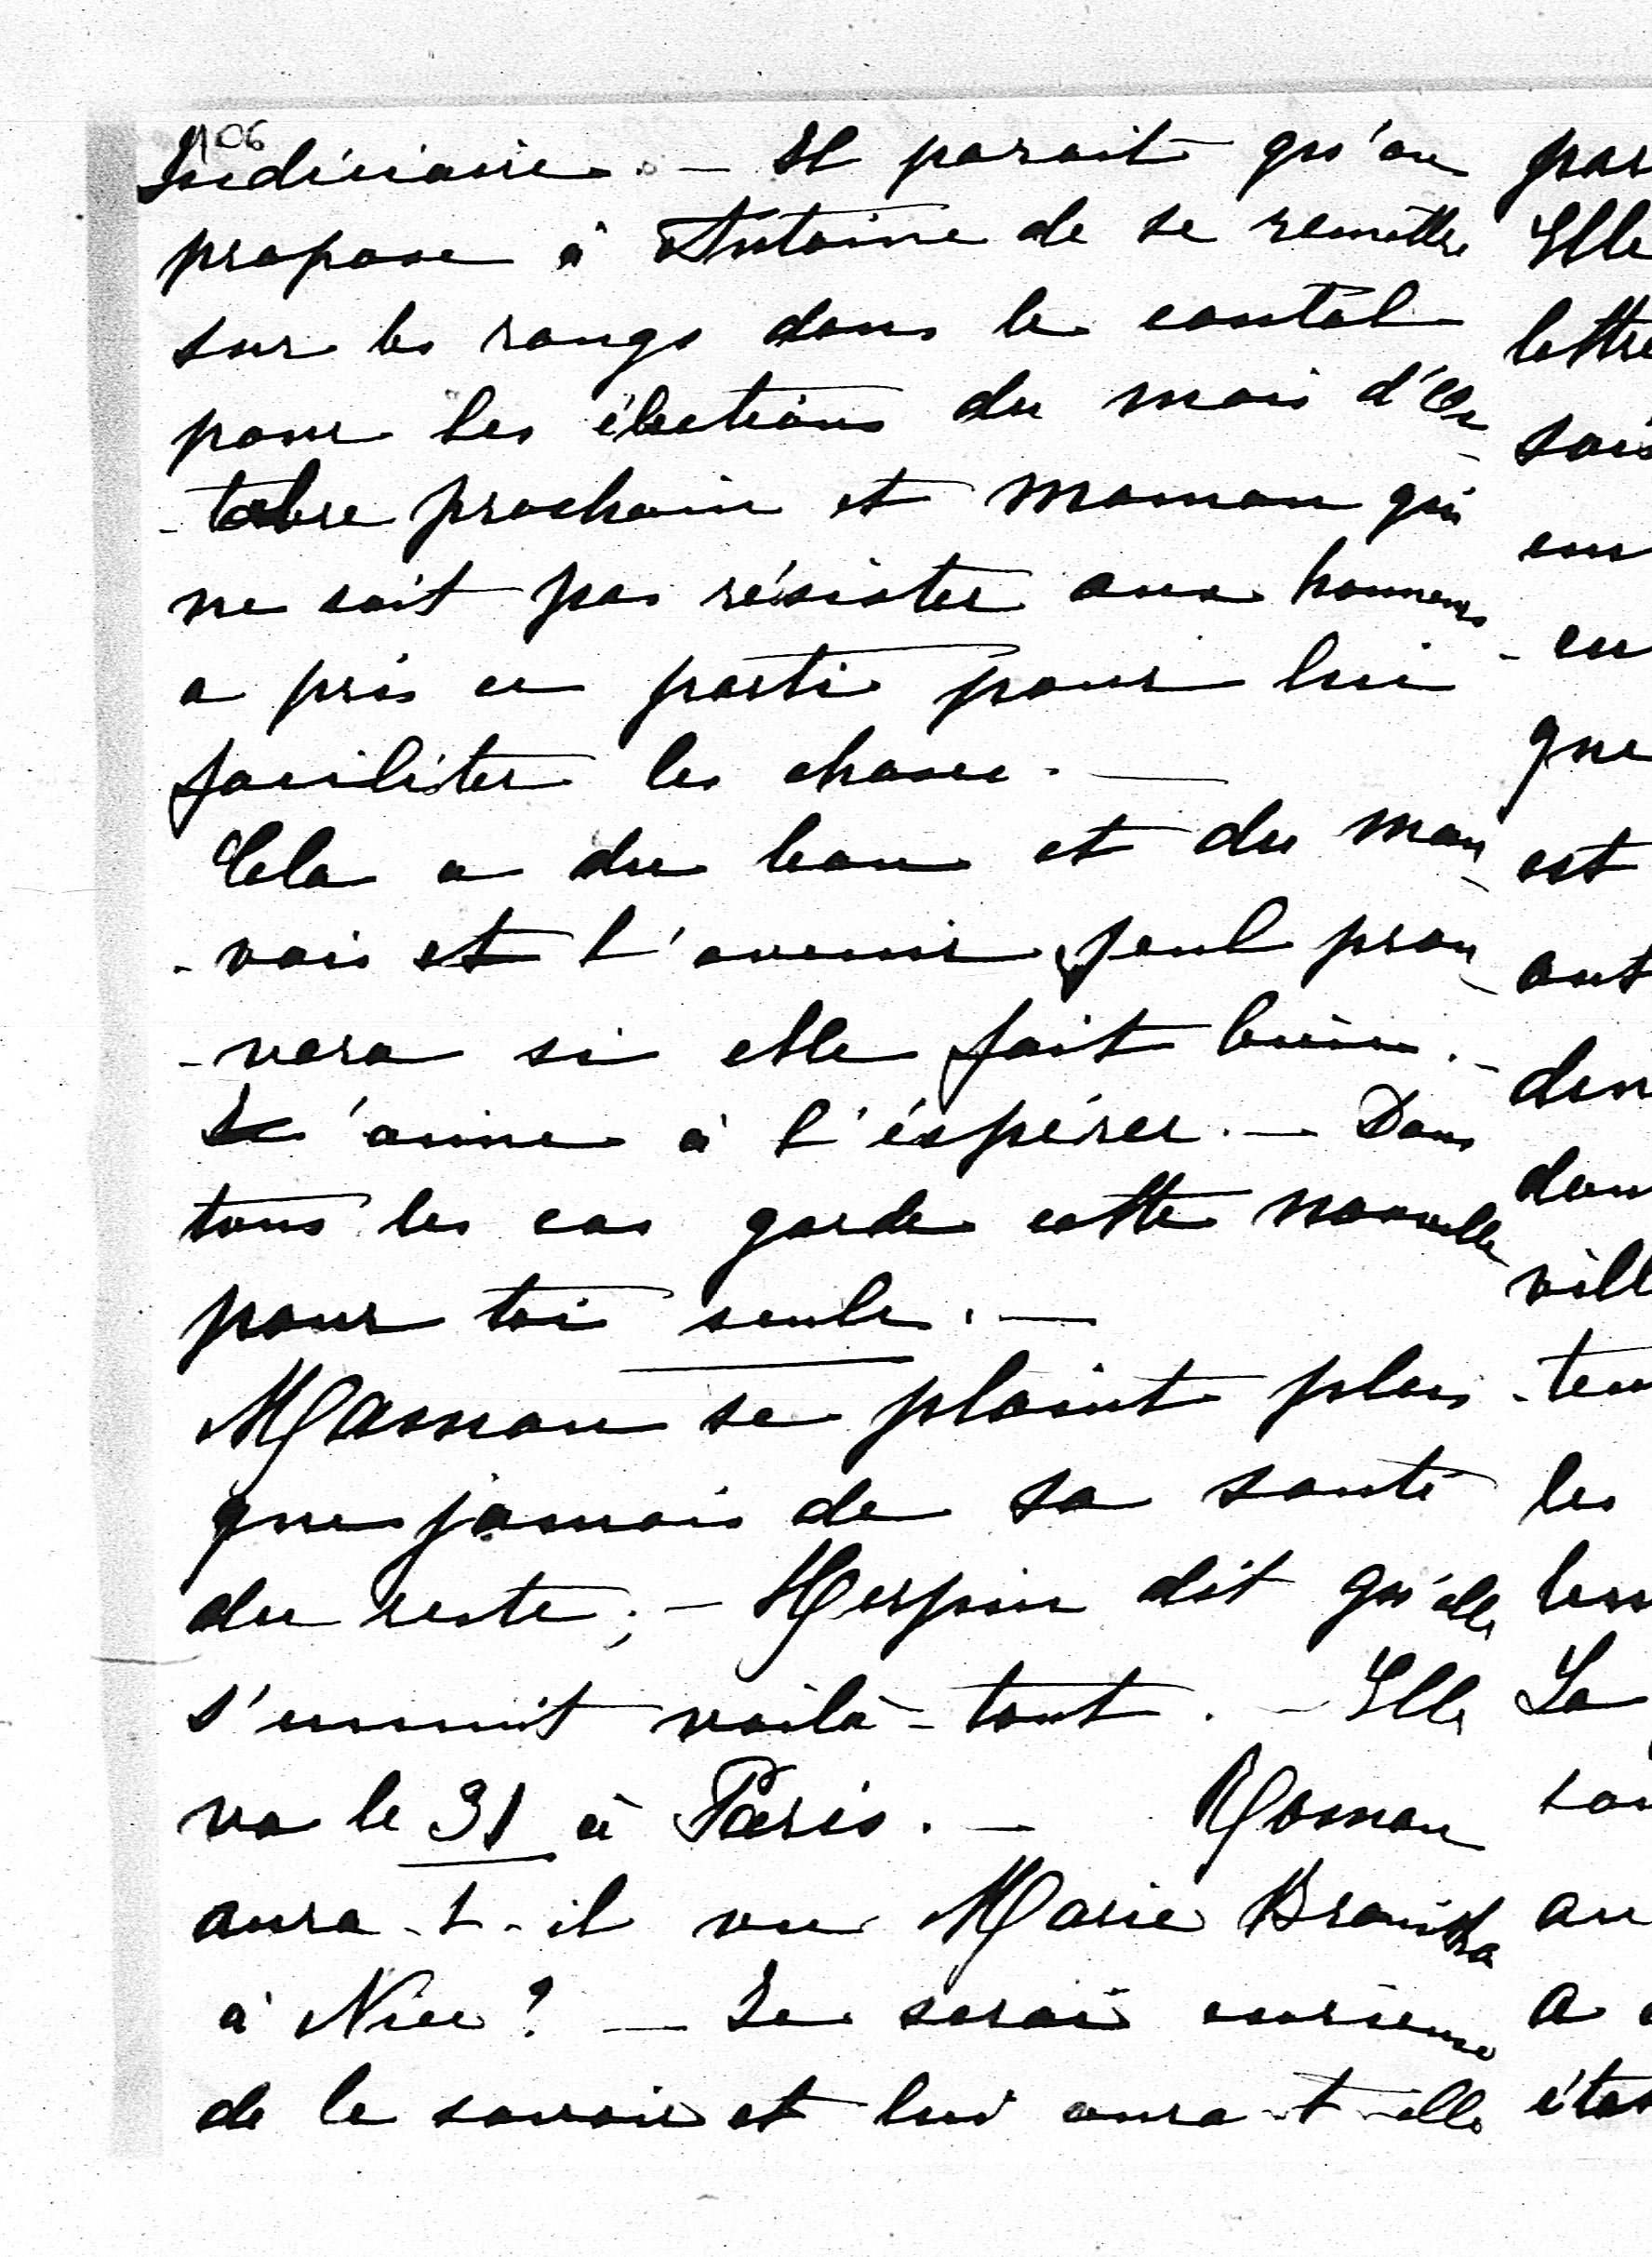 106
Judiciaire. — Il parait qu'on
propose à Antoine de se remettre
sur les rangs dans le cantal
pour les élections du mois d'Oc
-tobre prochain et maman qui
ne sait pas résister aux honneurs
a pris ce parti pour lui
faciliter les choses. —
Cela a du bon et du mau
-vais et l'avenir seul prou
-vera si elle fait bien. —
J'aime à l'éspérer. — Dans
tous les cas garde cette nouvelle
pour toi seule. —
Maman se plaint plus
que jamais de sa santé
du reste; — Herpin dit qu'elle
s'ennuit voilà-tout. — Elle
va le 31 à Paris. — Roman
aura-t-il vu Marie Branicka
à Nice? — Je serai curieuse
de le savoir et lui aura-t-elle
par
Elle
lettre
sais
en
que
est
ont
din
dan
vill
les
La
au
a
éta